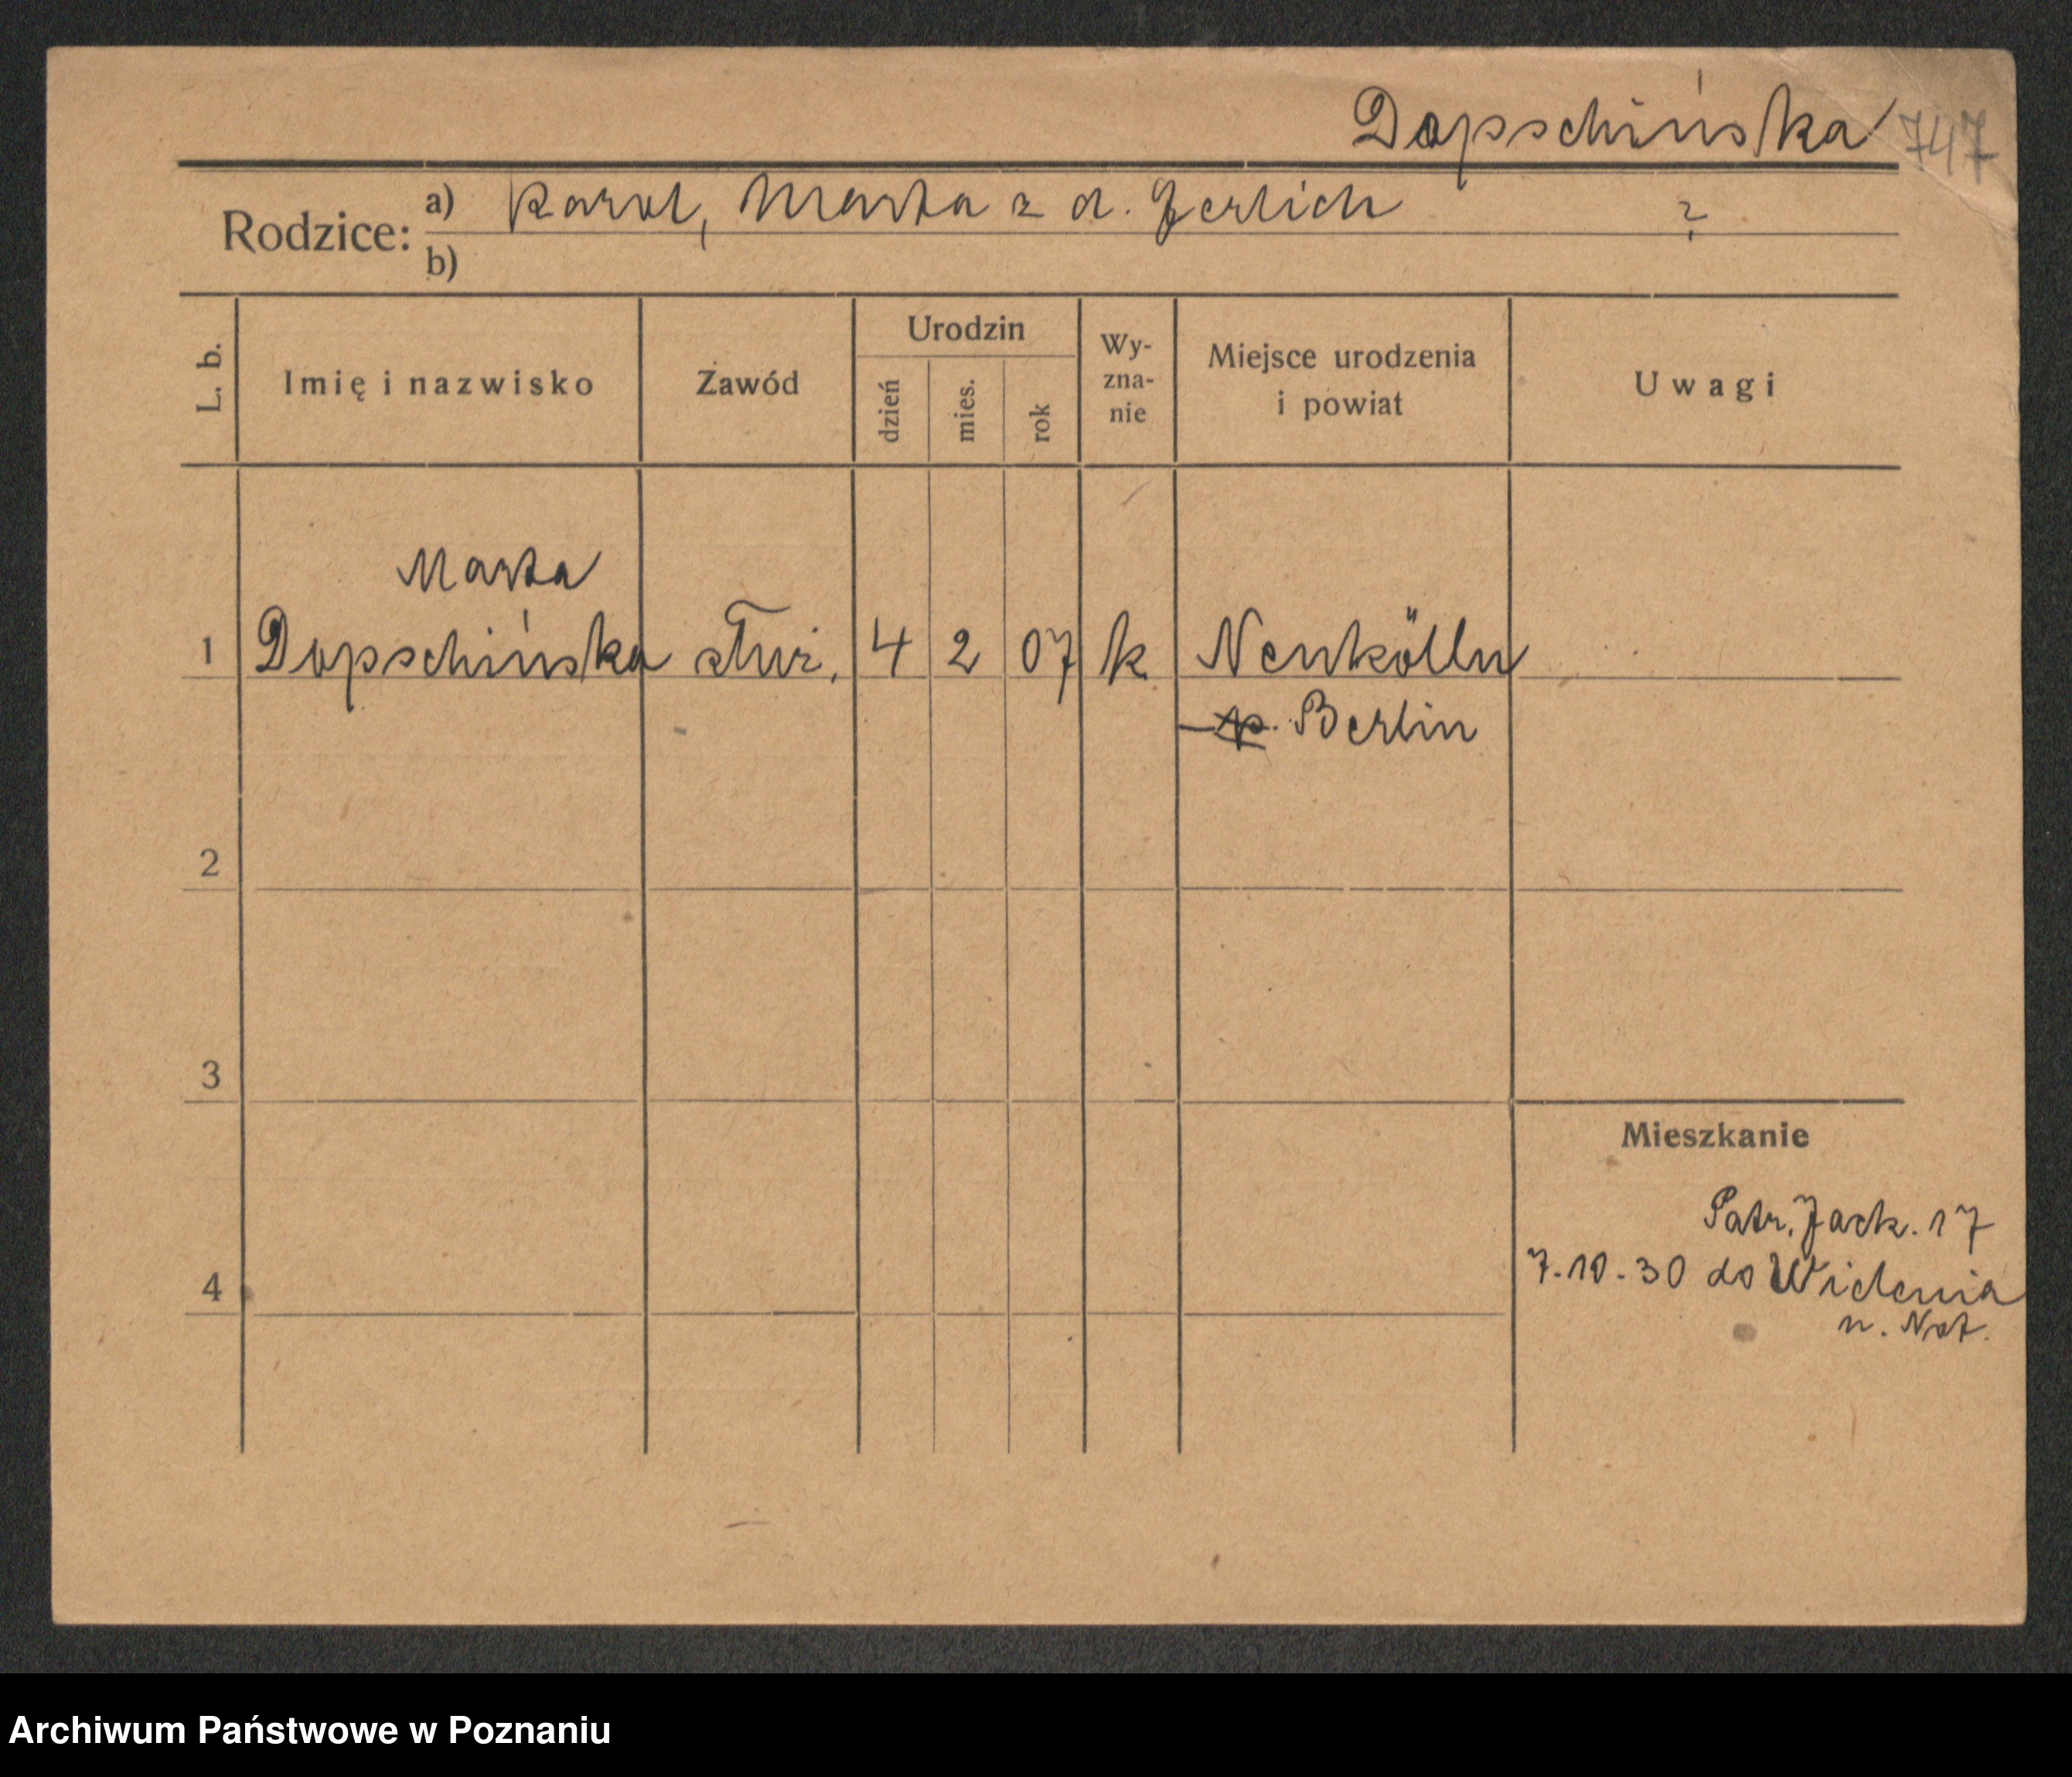 Dopschińska 747
Rodzice: a) Karol, Marta z d. Gerlich ?
b)
L. b. Imię i nazwisko Zawód Urodzin dzień mies. rok Wy-zna-nie Miejsce urodzenia i powiat Uwagi
Marta
1 Dopschińska 4 2 07 k Neukölln
p. Berlin
2
3
Mieszkanie
Patr. Jack. 17
4 7.10.30 do Wielenia
n. Not.
Archiwum Państwowe w Poznaniu